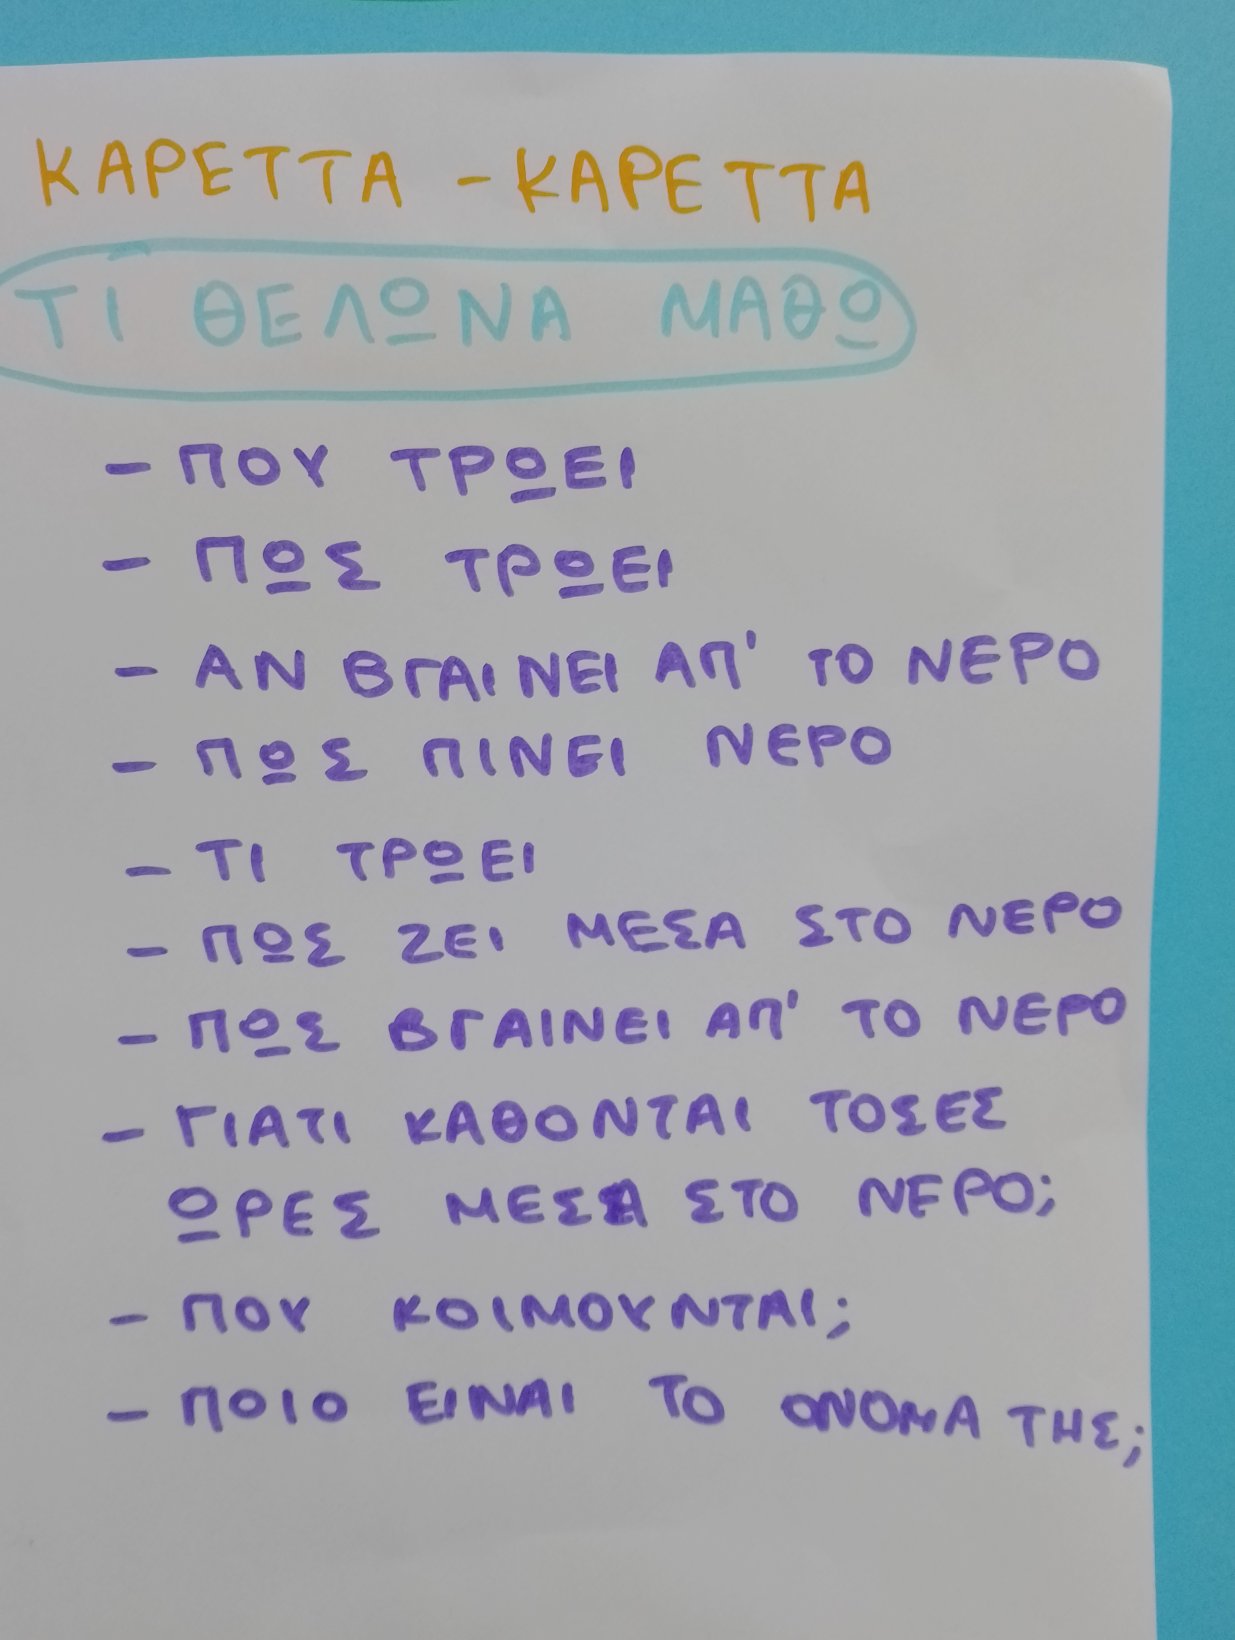 ΚΑΡΕΤΤΑ - ΚΑΡΕΤΤΑ
ΤΙ ΘΕΛΩ ΝΑ ΜΑΘΩ
- ΠΟΥ ΤΡΩΕΙ
- ΠΩΣ ΤΡΩΕΙ
- ΑΝ ΒΓΑΙΝΕΙ ΑΠ' ΤΟ ΝΕΡΟ
- ΠΩΣ ΠΙΝΕΙ ΝΕΡΟ
- ΤΙ ΤΡΩΕΙ
- ΠΩΣ ΖΕΙ ΜΕΣΑ ΣΤΟ ΝΕΡΟ
- ΠΩΣ ΒΓΑΙΝΕΙ ΑΠ' ΤΟ ΝΕΡΟ
- ΓΙΑΤΙ ΚΑΘΟΝΤΑΙ ΤΟΣΕΣ
ΩΡΕΣ ΜΕΣΑ ΣΤΟ ΝΕΡΟ;
- ΠΟΥ ΚΟΙΜΟΥΝΤΑΙ;
- ΠΟΙΟ ΕΙΝΑΙ ΤΟ ΟΝΟΜΑ ΤΗΣ;